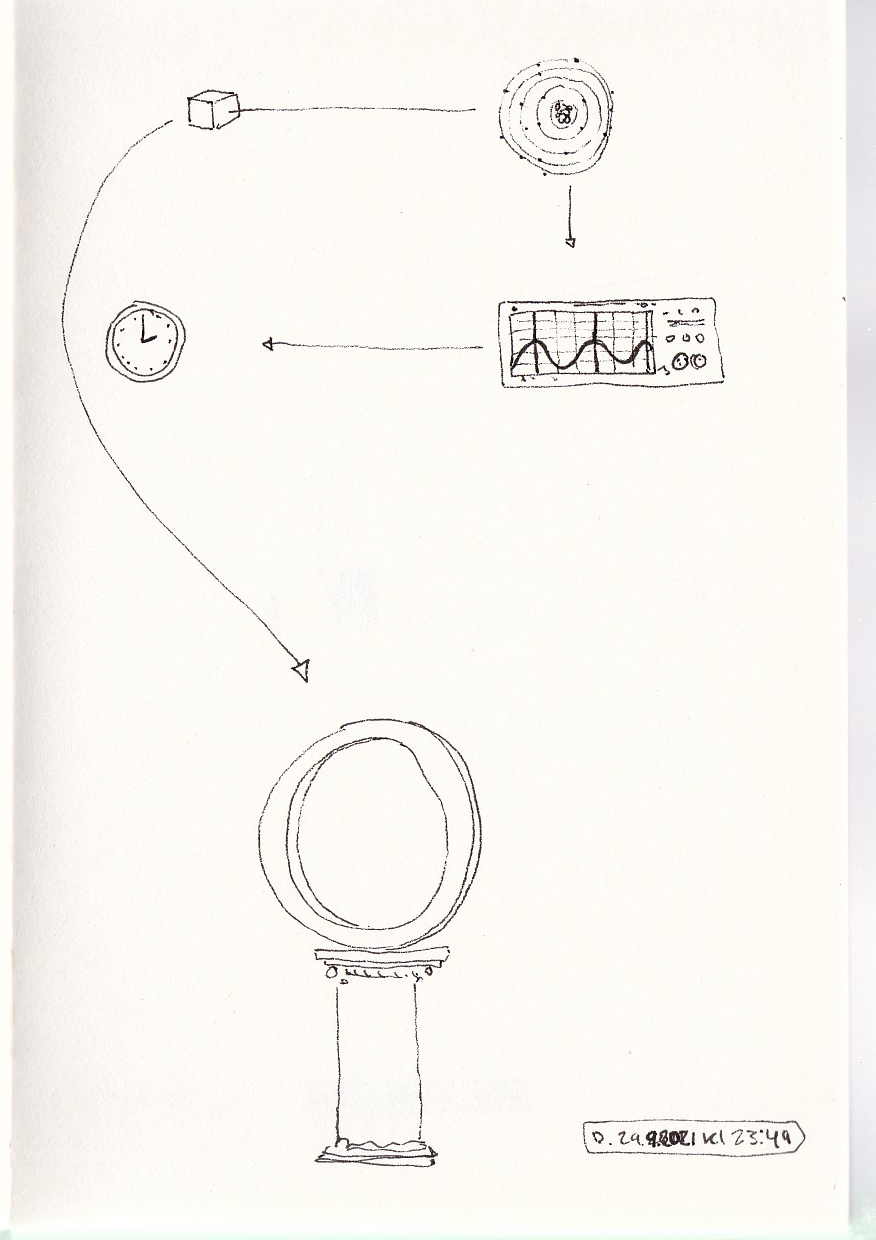 D. 29.9.2021 kl 23:49